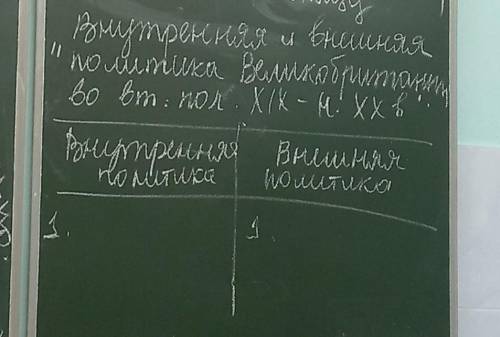 Внутренняя и внешняя
" политика Великобритании
во вт. пол. XIX - н. XX в".
Внутренняя политика
Внешняя политика
1.
1.